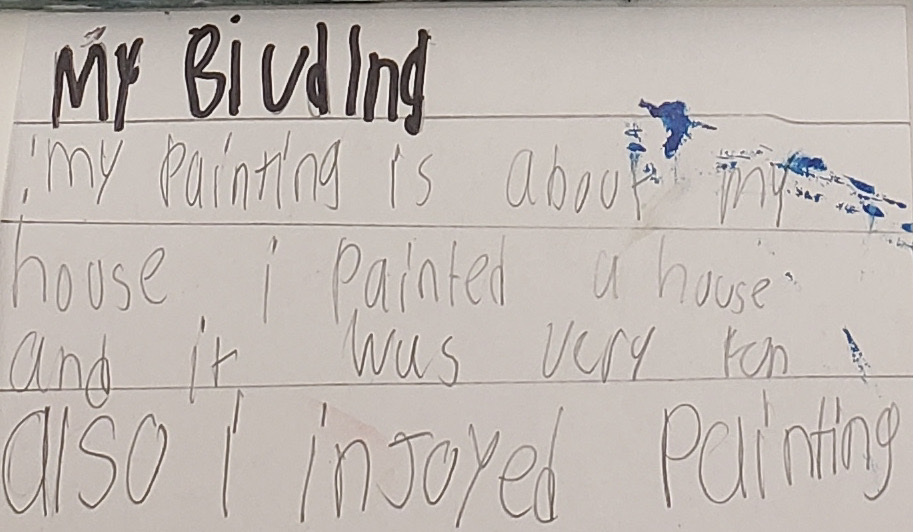 My Biuding
my painting is about my
house i painted a house
and it was very fon
also i injoyed painting